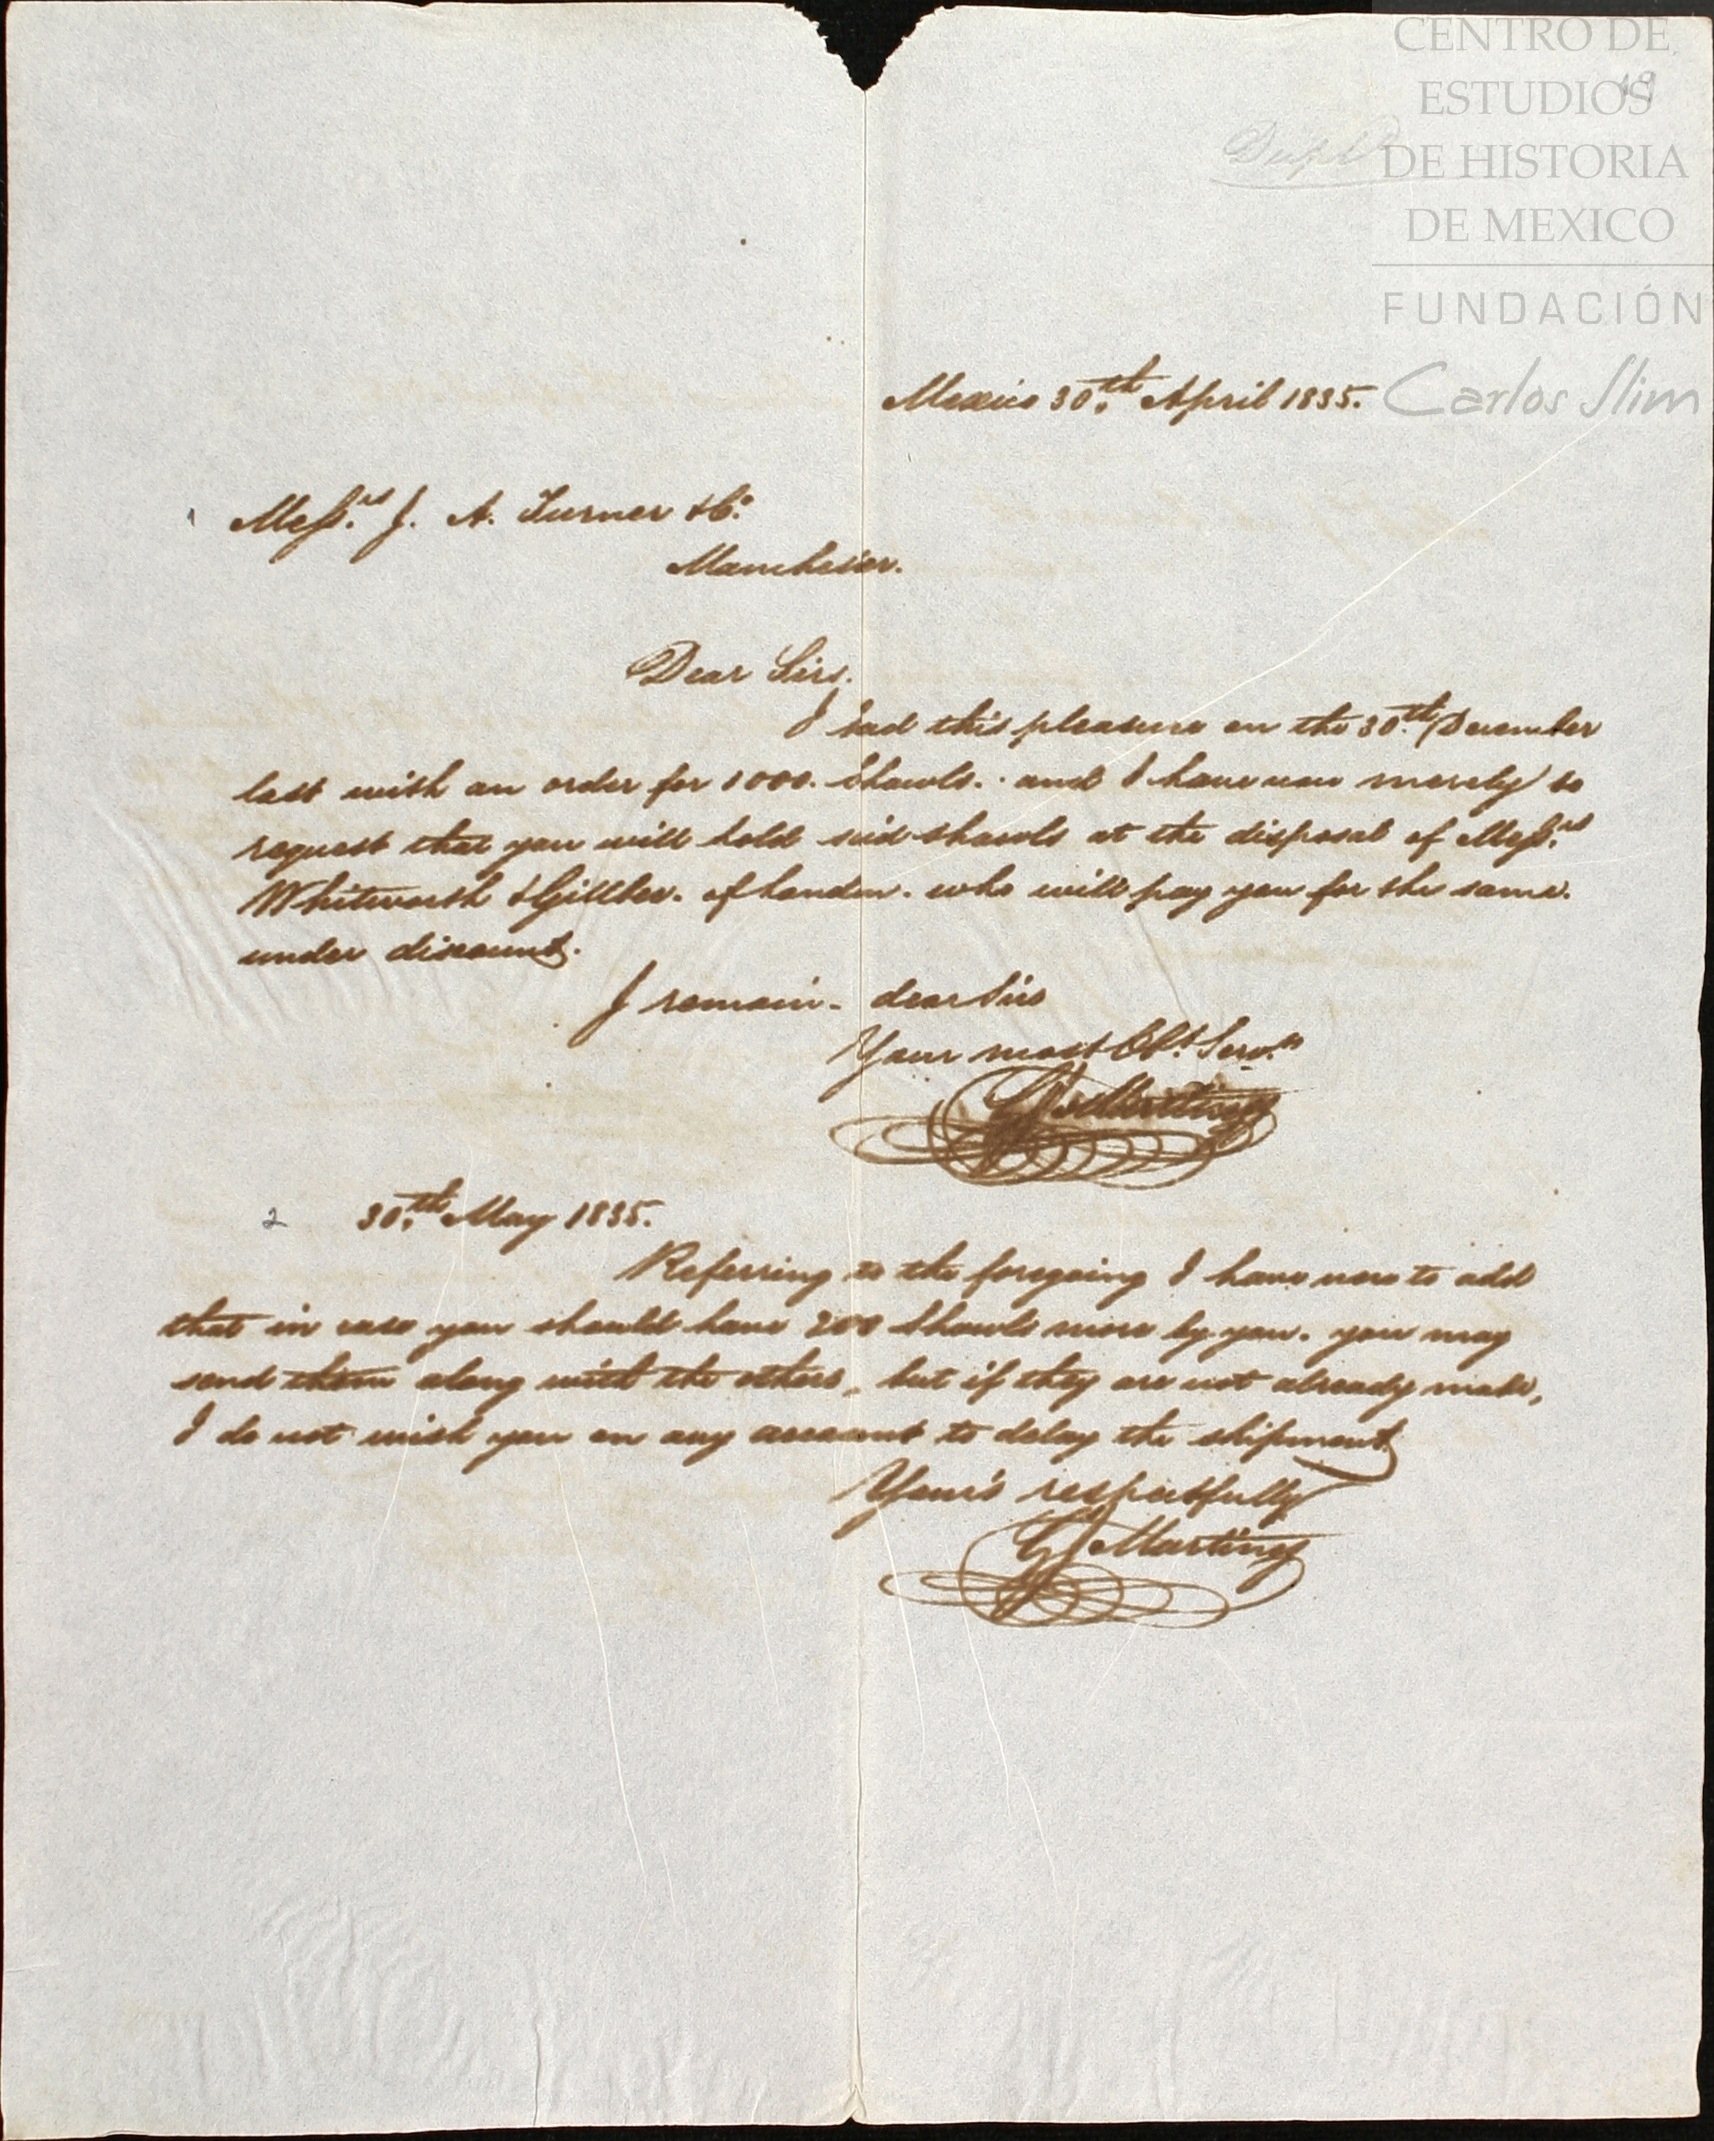 CENTRO DE
ESTUDIOS
19
DE HISTORIA
DE MEXICO
FUNDACIÓN
Carlos Slim
Mexico 30th April 1835.
1 Messrs J. A. Turner & Co.
Manchester.
Dear Sirs.
I had this pleasure on the 30th December
last with an order for 1000. Shawls. and I have now merely to
request that you will hold said Shawls at the disposal of Messrs
Whitworth & of London. who will pay you for the same.
under discount.
I remain - dear Sirs
Your most Obt. Servt.
G Martinez
2 30th May 1835.
Referring to the foregoing I have now to add
that in case you should have 200 Shawls more by you. you may
send them along with the others, but if they are not already made,
I do not wish you on any account to delay the shipment
Your's respectfully
G Martinez